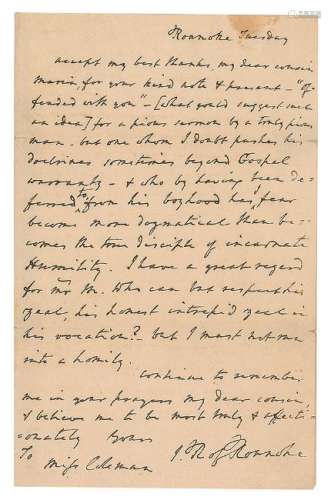 Roanoke Tuesday
accept my best thanks, my dear cousin
Maria, for your kind note & present - "of-
fended with you" - [what could suggest such
an idea] for a pious sermon by a truly pious
man. but one whom I doubt pushes his
doctrines sometimes beyond Gospel
warranty - & who by having been de-
ferred to from his boyhood has, I fear
become more dogmatical than be-
comes the true disciple of incarnate
Humility. I have a great regard
for Mr M. Who can but respect his
zeal, his honest intrepid zeal in
his vocation? but I must not run
into a homily.
continue to remember
me in your prayers my dear cousin
& believe me to be most truly & affecti-
onately Yours
To
Miss Coleman
J. R. of Roanoke